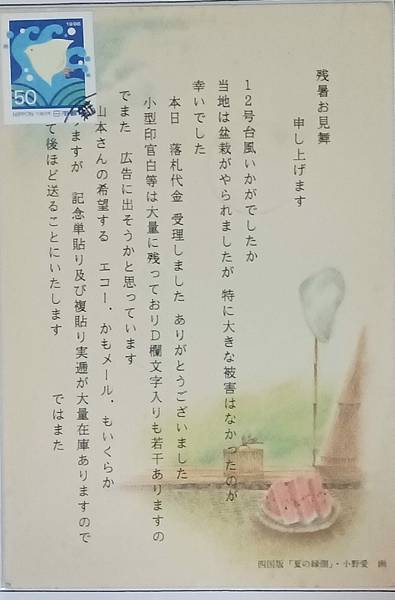 残暑お見舞
申し上げます
12号台風いかがでしたか
当地は盆栽がやられましたが 特に大きな被害はなかったのが
幸いでした
本日 落札代金 受理しました ありがとうございました
小型印官白等は大量に残っておりD欄文字入りも若干ありますの
でまた 広告に出そうかと思っています
山本さんの希望する エコー．かもメール．もいくらか
ますが 記念単貼り及び複貼り実逓が大量在庫ありますので
て後ほど送ることにいたします ではまた
1986
50
NIPPON
日本郵便
四国版「夏の縁側」・小野愛 画